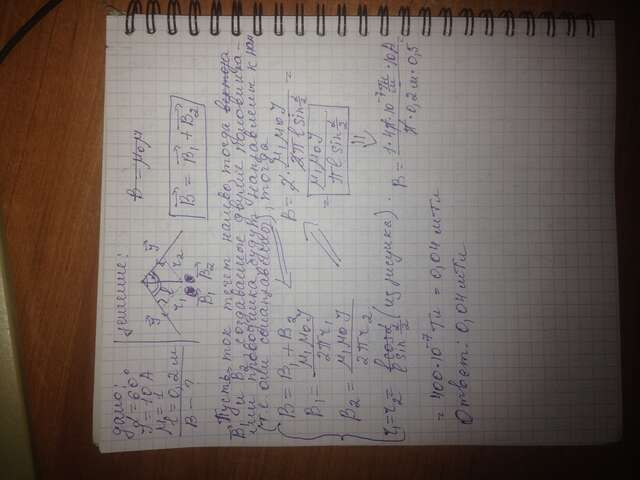 дано:
α = 60°
I = 10 А
μ₁ = 1
l = 0,2 м
B - ?
решение:
B = μ₀μ
I⃗ α I⃗
r₁ r₂
B⃗₁ B⃗₂
B⃗ = B⃗₁ + B⃗₂
Пусть ток течет налево, тогда
B⃗₁ и B⃗₂, создаваемые двумя половинка-
ми проводника, будут направлены к нам
(т.е. они сонаправлены), тогда
B = B₁ + B₂
B₁ = μ₁μ₀I / 2πr₁
B₂ = μ₁μ₀I / 2πr₂
r₁ = r₂ = l sin α/2 (из рисунка).
B = 2 · μ₁μ₀I / 2πl sin α/2 =
= μ₁μ₀I / πl sin α/2
B = 1·4π·10⁻⁷ Гн/м · 10А / π·0,2м·0,5 =
= 400·10⁻⁷ Тл = 0,04 мТл
Ответ: 0,04 мТл